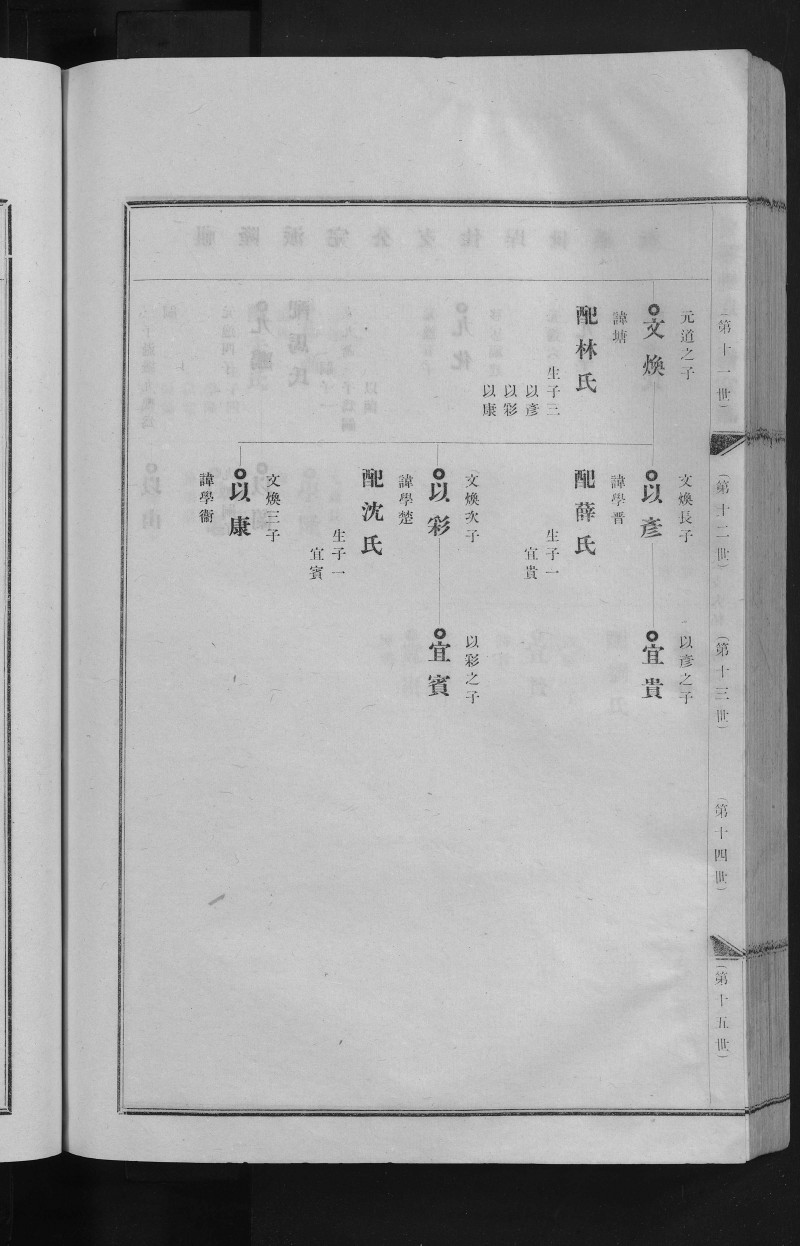 （第十一世）
元道之子
文煥
諱塘
配林氏
生子三
以彥
以彩
以康
（第十二世）
文煥長子
以彥
諱學晋
配薛氏
生子一
宜貴
文煥次子
以彩
諱學楚
配沈氏
生子一
宜賓
文煥三子
以康
諱學衞
（第十三世）
以彥之子
宜貴
以彩之子
宜賓
（第十四世）
（第十五世）